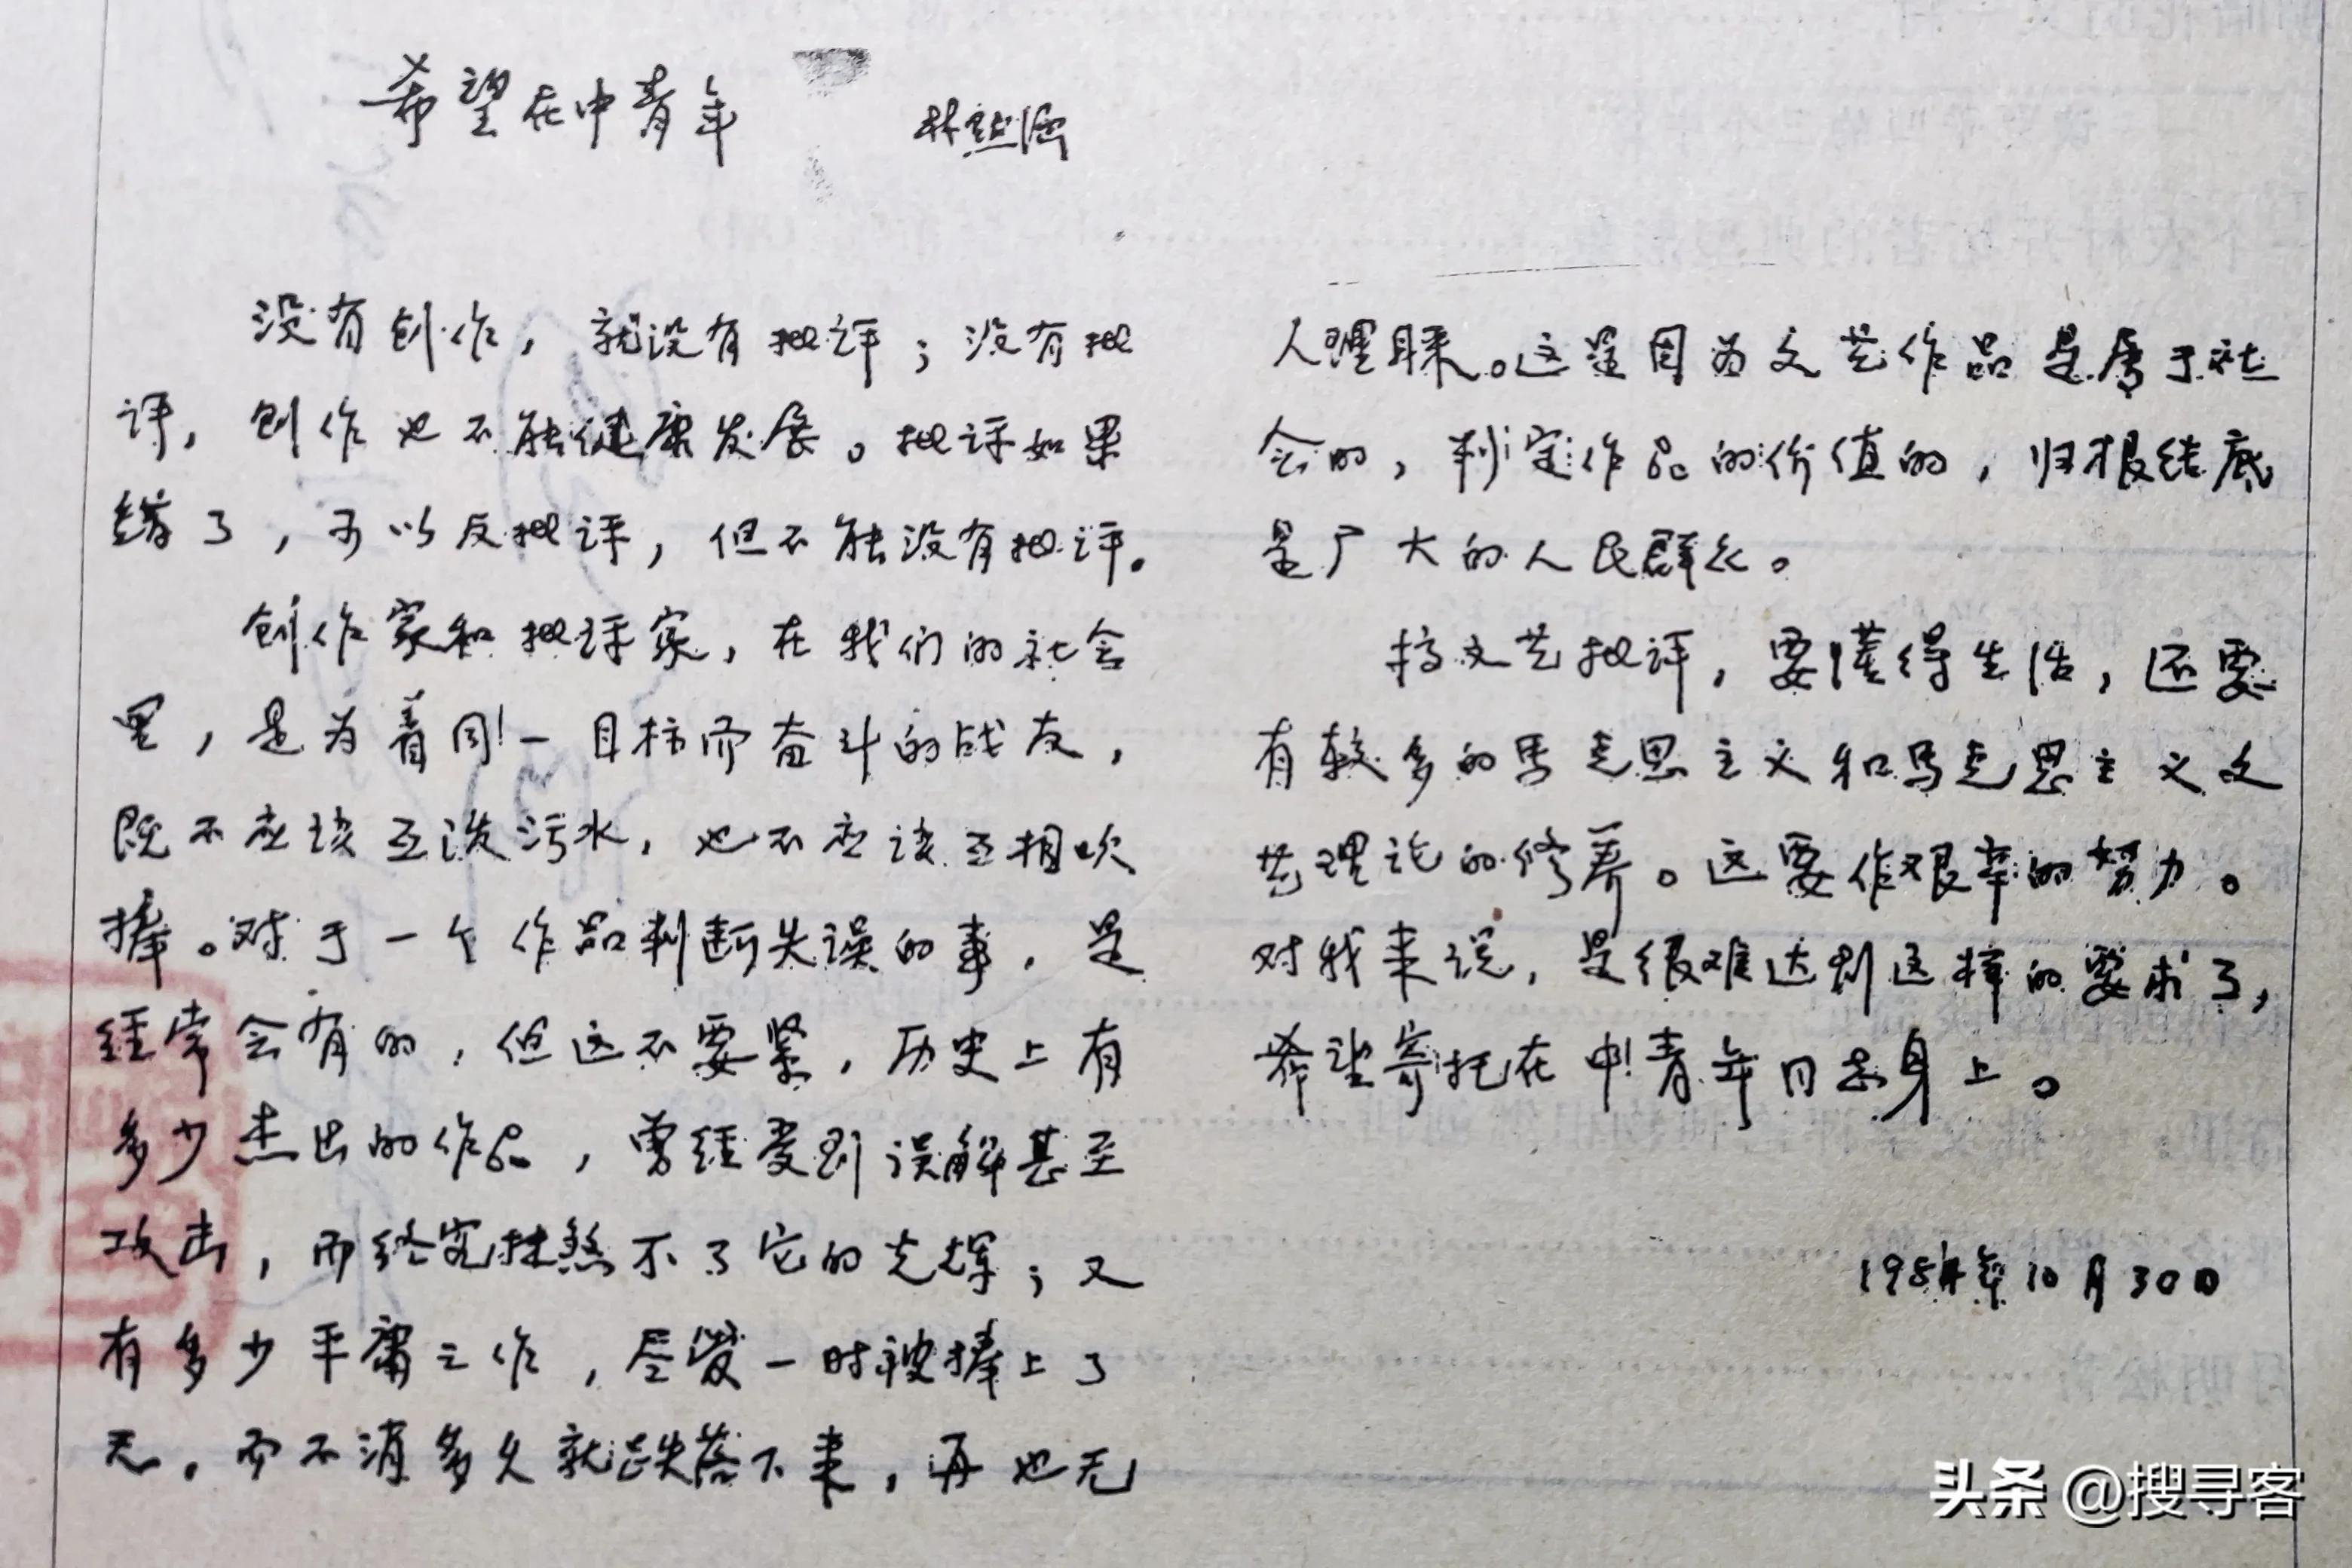 希望在中青年
林默涵
没有创作，就没有批评；没有批
评，创作也不能健康发展。批评如果
错了，可以反批评，但不能没有批评。
创作家和批评家，在我们的社会
里，是为着同一目标而奋斗的战友，
既不应该互泼污水，也不应该互相吹
捧。对于一个作品判断失误的事，是
经常会有的，但这不要紧，历史上有
多少杰出的作品，曾经受到误解甚至
攻击，而终究抹煞不了它的光辉；又
有多少平庸之作，尽管一时被捧上了
天，而不消多久就跌落下来，再也无
人理睬。这是因为文艺作品是属于社
会的，判定作品的价值的，归根结底
是广大的人民群众。
搞文艺批评，要懂得生活，还要
有较多的马克思主义和马克思主义文
艺理论的修养。这要作艰辛的努力。
对我来说，是很难达到这样的要求了，
希望寄托在中青年同志身上。
1984年10月30日
头条 @搜寻客